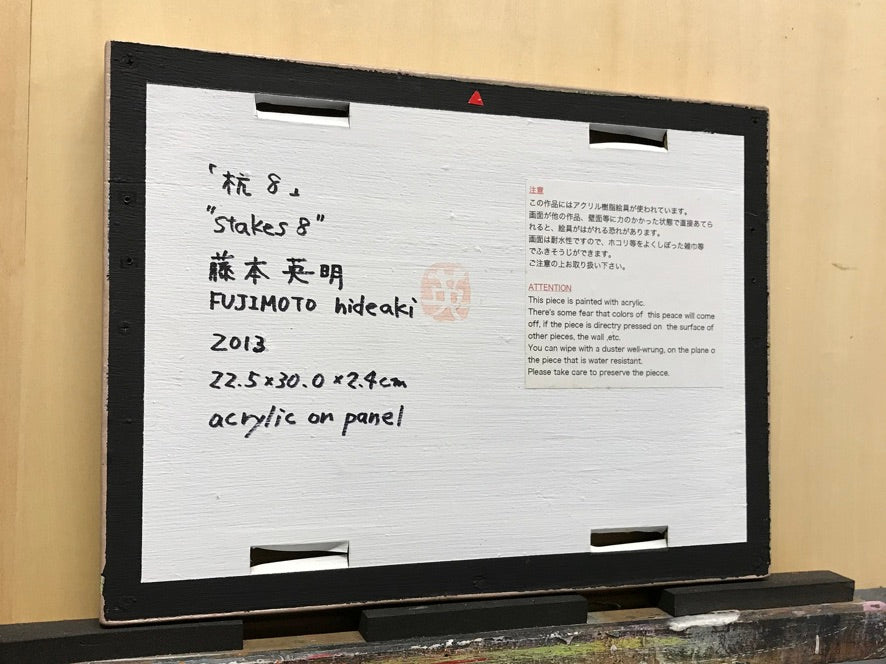 「杭 8」
"Stakes 8"
藤本 英明
FUJIMOTO hideaki
2013
22.5×30.0×2.4cm
acrylic on panel
注意
この作品にはアクリル樹脂絵具が使われています。
画面が他の作品、壁面等に力のかかった状態で直接あてら
れると、絵具がはがれる恐れがあります。
画面は耐水性ですので、ホコリ等をよくしぼった雑巾等
でふきそうじができます。
ご注意の上お取り扱い下さい。
ATTENTION
This piece is painted with acrylic.
There's some fear that colors of this peace will come
off, if the piece is directry pressed on the surface of
other pieces, the wall ,etc.
You can wipe with a duster well-wrung, on the plane o
the piece that is water resistant.
Please take care to preserve the piecce.